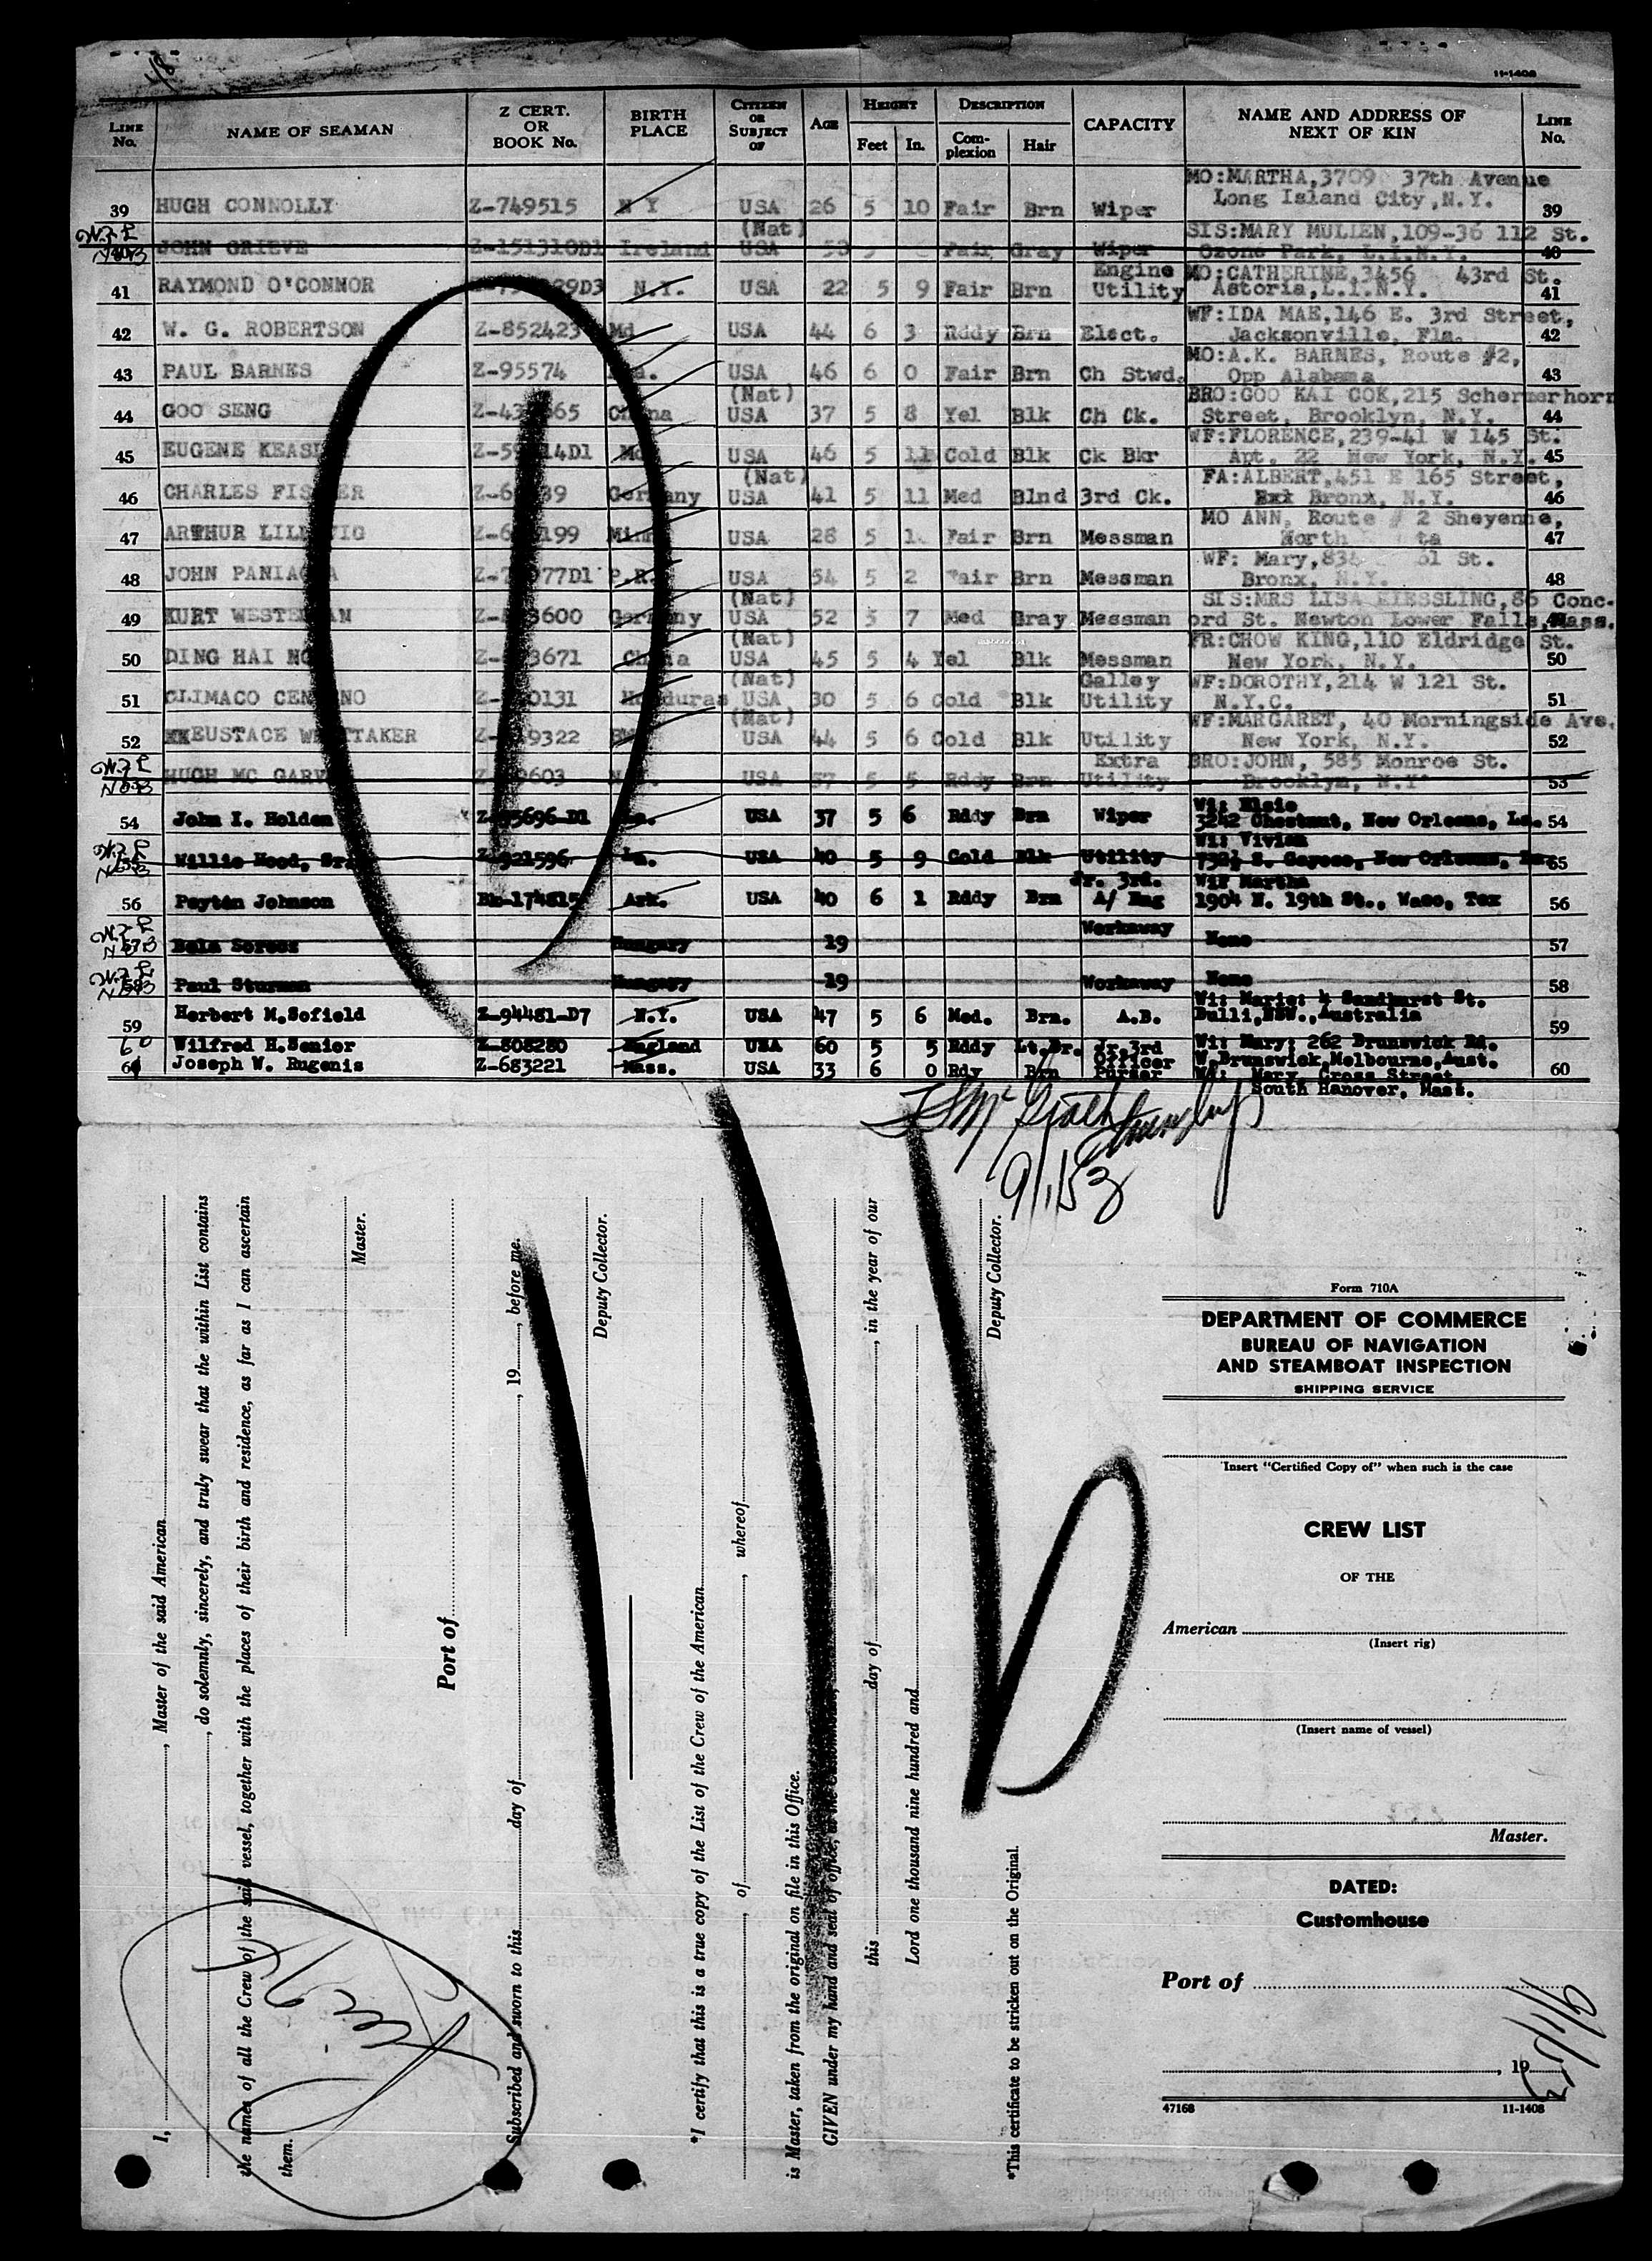 11-1408
LINE No. NAME OF SEAMAN Z CERT. OR BOOK No. BIRTH PLACE CITIZEN OR SUBJECT OF AGE HEIGHT Feet In. DESCRIPTION Complexion Hair CAPACITY NAME AND ADDRESS OF NEXT OF KIN LINE No.
MO:MARTHA,3709 37th Avenue
39 HUGH CONNOLLY Z-749515 N Y USA 26 5 10 Fair Brn Wiper Long Island City,N.Y. 39
(Nat) SIS:MARY MULLEN,109-36 112 St.
40 JOHN GRIEVE Z-151310D1 Ireland USA 53 5 Fair Gray Wiper Ozone Park, L.I.N.Y. 40
Engine MO:CATHERINE,3456 43rd St.
41 RAYMOND O'CONNOR N.Y. USA 22 5 9 Fair Brn Utility Astoria,L.I.N.Y. 41
WF:IDA MAE,146 E. 3rd Street,
42 W. G. ROBERTSON Z-852423 Md USA 44 6 3 Rddy Brn Elect. Jacksonville, Fla. 42
MO:A.K. BARNES, Route #2,
43 PAUL BARNES Z-95574 USA 46 6 0 Fair Brn Ch Stwd. Opp Alabama 43
(Nat) BRO:GOO KAI COK,215 Schermerhorn
44 GOO SENG China USA 37 5 8 Yel Blk Ch Ck. Street, Brooklyn, N.Y. 44
WF:FLORENCE,239-41 W 145 St.
45 EUGENE Md USA 46 5 11 Cold Blk Ck Bkr Apt. 22 New York, N.Y. 45
(Nat) FA:ALBERT,451 E 165 Street,
46 CHARLES Germany USA 41 5 11 Med Blnd 3rd Ck. Bronx, N.Y. 46
MO ANN, Route # 2 Sheyenne,
47 ARTHUR Minn USA 28 5 Fair Brn Messman North 47
WF: Mary, St.
48 JOHN P.R. USA 54 5 2 Fair Brn Messman Bronx, N.Y. 48
(Nat) SIS:MRS LISA KIESSLING,86 Conc-
49 KURT Germany USA 52 5 7 Med Gray Messman ord St. Newton Lower Falls,Mass. 49
(Nat) FR:CHOW KING,110 Eldridge St.
50 DING HAI China USA 45 5 4 Yel Blk Messman New York, N.Y. 50
(Nat) Galley WF:DOROTHY,214 W 121 St.
51 CLIMACO Honduras USA 30 5 6 Cold Blk Utility N.Y.C. 51
(Nat) WF:MARGARET, 40 Morningside Ave.
52 EUSTACE WHITTAKER USA 44 5 6 Cold Blk Utility New York, N.Y. 52
Extra BRO:JOHN, 585 Monroe St.
53 HUGH MC USA 57 5 5 Rddy Brn Utility Brooklyn, N.Y 53
Wi: Elsie
54 John I. Holden La. USA 37 5 6 Rddy Brn Wiper 3242 Chestnut, New Orleans, La. 54
Wi: Vivian
55 Willie Hood, Sr. Z-921596 La. USA 40 5 9 Cold Blk Utility New Orleans, La. 55
Jr. 3rd. Wif Martha
56 Peyton Johnson Bk-174815 Ark. USA 40 6 1 Rddy Brn A/ Eng 1904 N. 19th St., Waco, Tex 56
57 Bela Soross Hungary 19 Workaway None 57
58 Paul Sturman Hungary 19 Workaway None 58
Wi: Marie: 4 Sandhurst St.
59 Herbert M.Sofield Z-94481-D7 N.Y. USA 47 5 6 Med. Brn. A.B. Bulli,NSW.,Australia 59
60 Wilfred H.Senior Z-808280 England USA 60 5 5 Rddy Lt.Br. Jr.3rd Officer Wi: Mary; 262 Brunswick Rd. W.Brunswick,Melbourne,Aust.
Joseph W. Rugenis Z-683221 Mass. USA 33 6 0 Rdy Brn Purser Mary Cross Street 60
South Hanover, Mass.
9/1/53
I, , Master of the said American
, do solemnly, sincerely, and truly swear that the within List contains
the names of all the Crew of the said vessel, together with the places of their birth and residence, as far as I can ascertain
them.
Master.
Port of
Subscribed and sworn to this day of , 19 , before me.
Deputy Collector.
*I certify that this is a true copy of the List of the Crew of the American
of , whereof
is Master, taken from the original on file in this Office.
GIVEN under my hand and seal of office, at the Customhouse,
this day of , in the year of our
Lord one thousand nine hundred and
Deputy Collector.
*This certificate to be stricken out on the Original.
Form 710A
DEPARTMENT OF COMMERCE
BUREAU OF NAVIGATION
AND STEAMBOAT INSPECTION
SHIPPING SERVICE
Insert "Certified Copy of" when such is the case
CREW LIST
OF THE
American
(Insert rig)
(Insert name of vessel)
Master.
DATED:
Customhouse
Port of
, 19
9/1/53
47168 11-1408